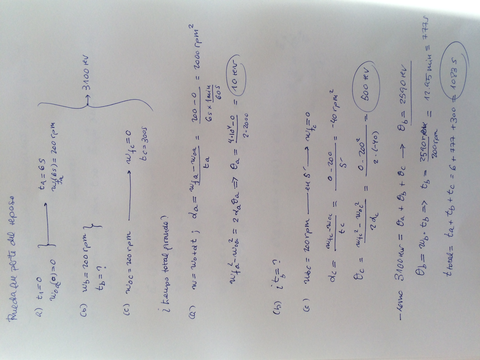 Rueda que parte del reposo
a) t₁=0 → ta=6s
w₀a(0)=0 wfa(6s)=200rpm
(b) wb=200rpm
tb=?
→ 3100 rev
(c) w₀c=200rpm → wfc=0
tc=300s
¿tiempo total girando?
(a) w=w₀+αt ; αa = (wfa - w₀a)/ta = (200-0)/(6s × 1min/60s) = 2000rpm²
wfa²-w₀a² = 2αaθa ⇒ θa = (4·10⁴-0)/(2·2000) = 10 rev
(b) ¿tb?
(c) w₀c=200rpm — en 5' → wfc=0
αc = (wfc-w₀c)/tc = (0-200)/5' = -40rpm²
θc = (wfc²-w₀c²)/(2αc) = (0-200²)/(2·(-40)) = 500rev
- como 3100rev = θa+θb+θc → θb = 2590rev
θb = wb·tb ⇒ tb = 2590rev/200rpm = 12.95min = 777s
t total = ta+tb+tc = 6+777+300 = 1083s